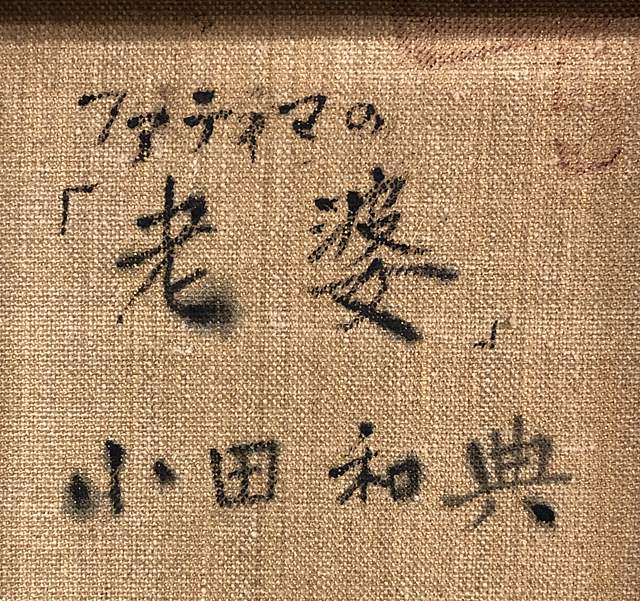 ファティマの
「老婆」
小田和典